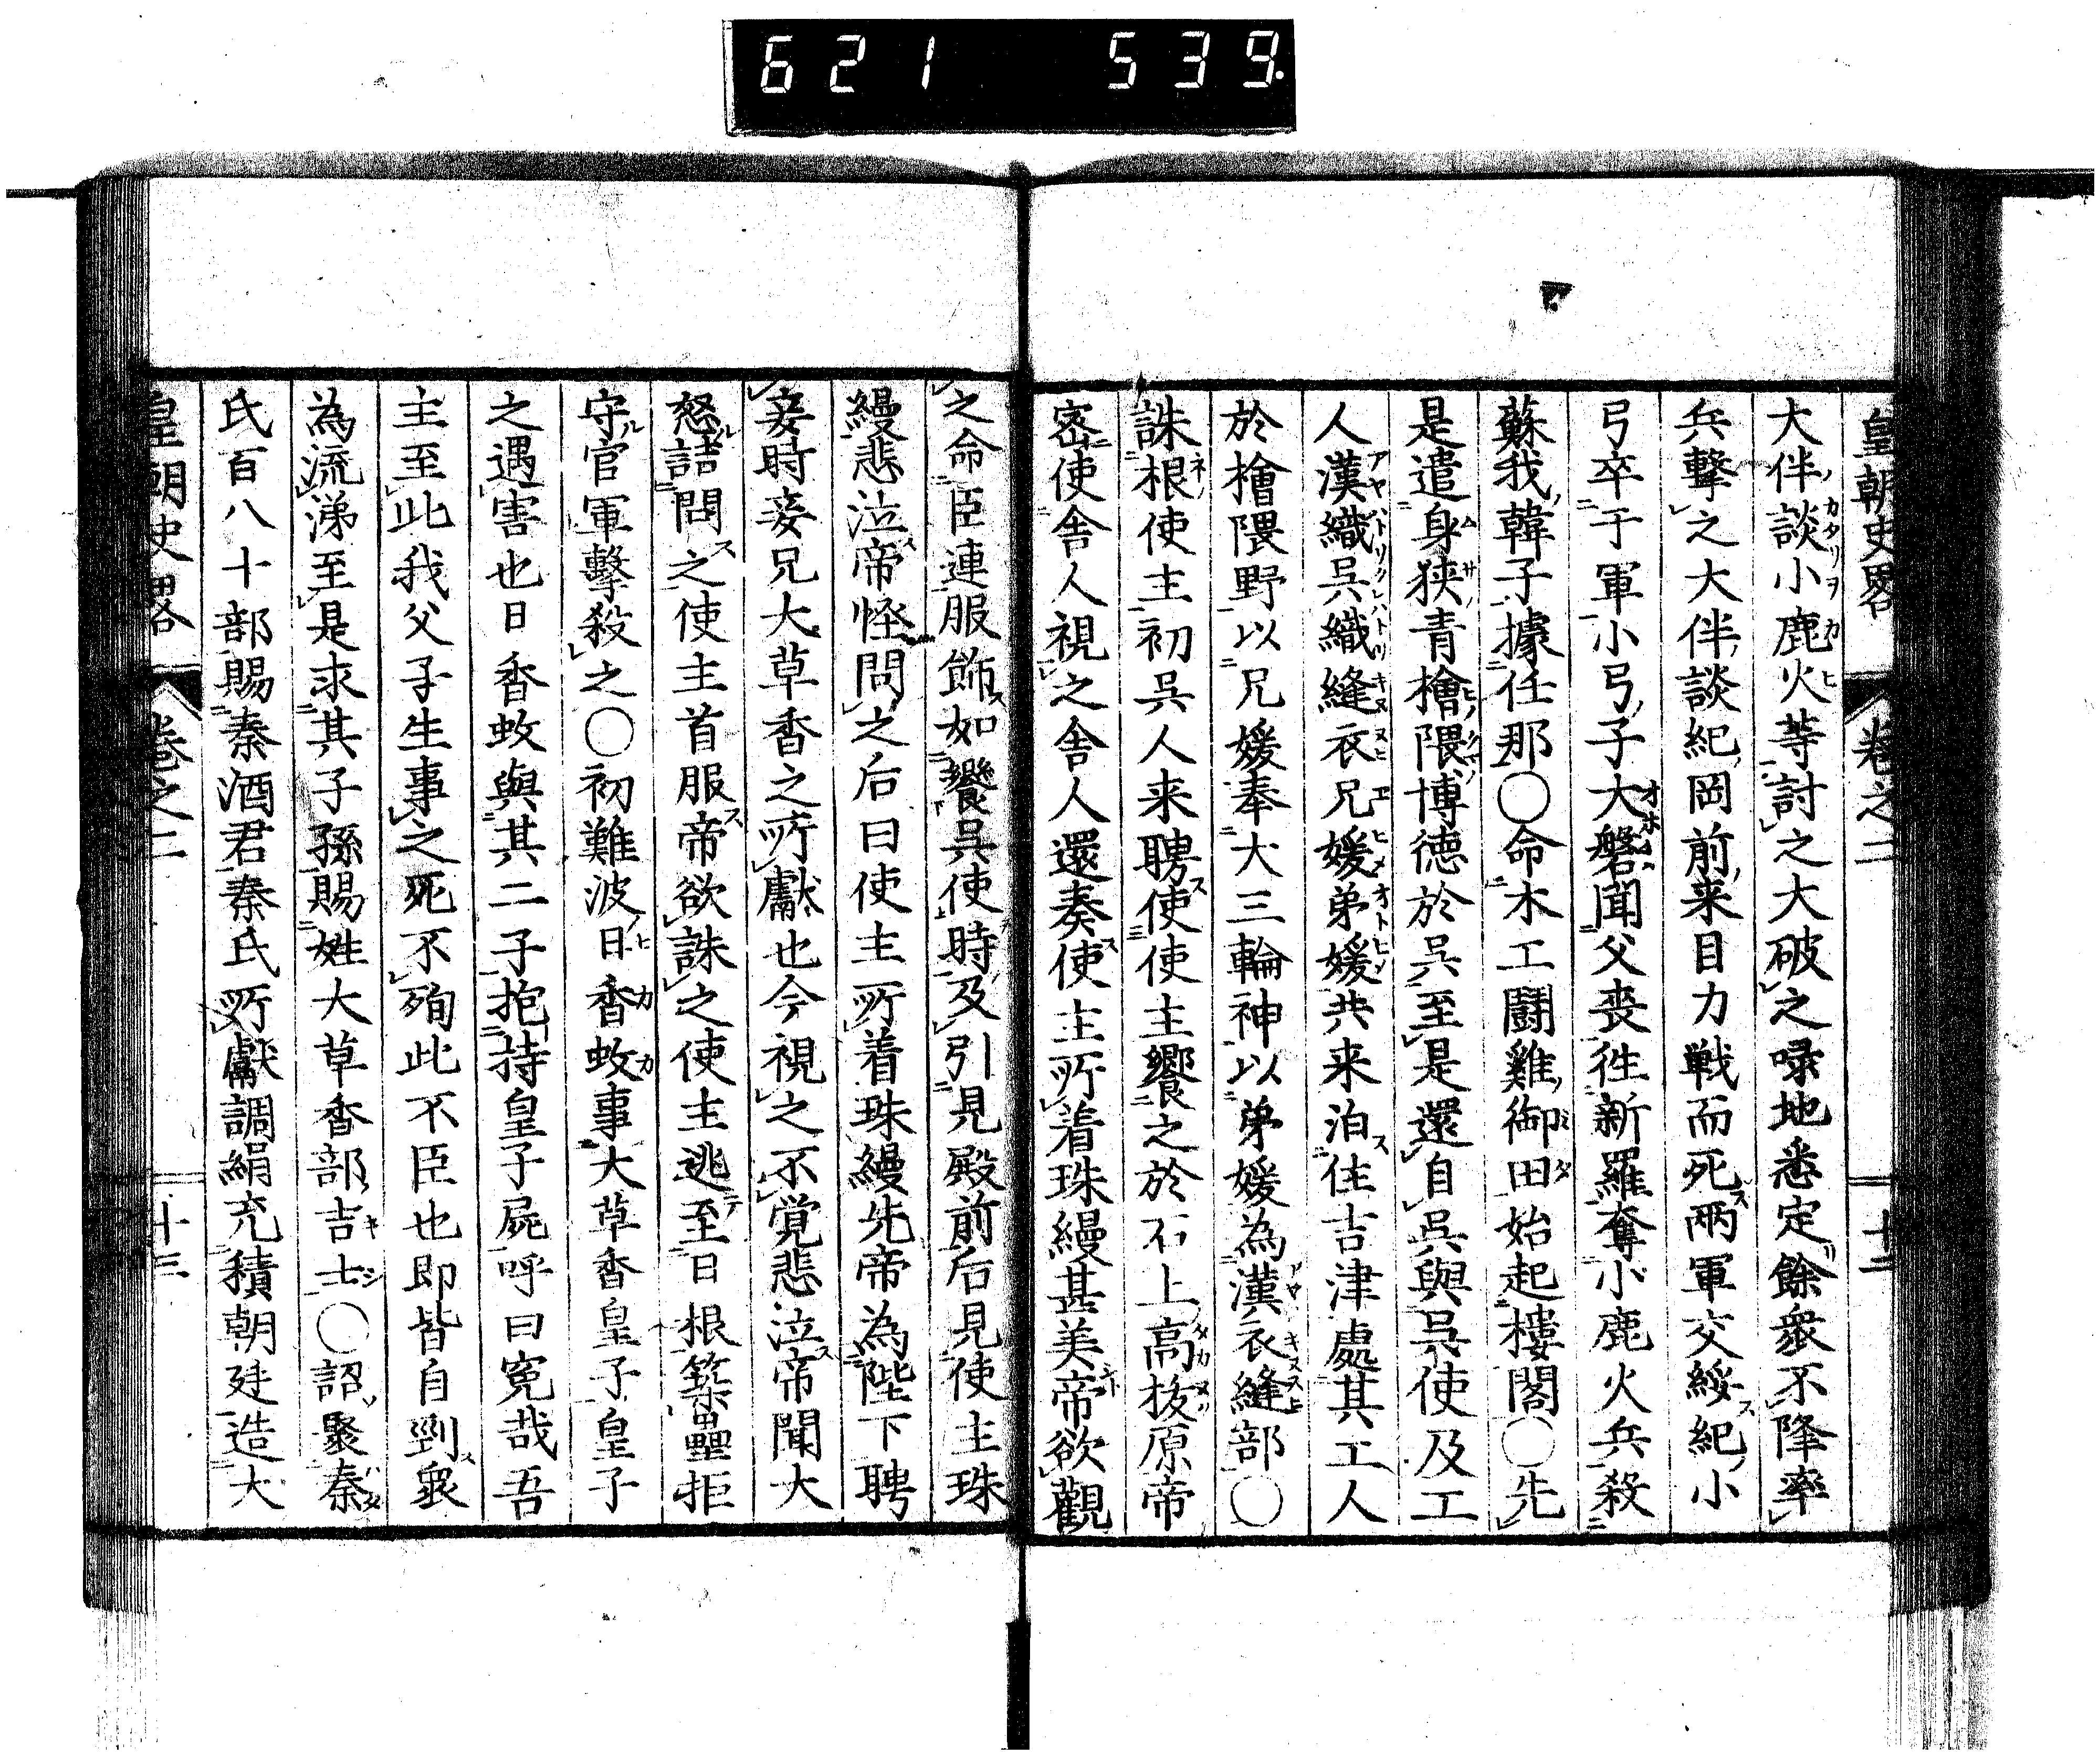 621 539.
皇朝史畧 卷之二 十二
大伴談小鹿火等討之大破之㖨地悉定餘衆不降率
兵擊之大伴談紀岡前来目力戦而死兩軍交綏紀小
弓卒于軍小弓子大磐聞父喪徃新羅奪小鹿火兵殺
蘇我韓子據任那〇命木工闘雞御田始起樓閣〇先
是遣身狹青檜隈博德於呉至是還自呉與呉使及工
人漢織呉織縫衣兄媛弟媛共来泊住吉津處其工人
於檜隈野以兄媛奉大三輪神以弟媛為漢衣縫部〇
誅根使主初呉人来聘使使主饗之於石上高抜原帝
密使舎人視之舎人還奏使主所着珠縵甚美帝欲觀
之命臣連服飾如饗呉使時及引見殿前后見使主珠
縵悲泣帝怪問之后曰使主所着珠縵先帝為陛下聘
妾時妾兄大草香之所獻也今視之不覚悲泣帝聞大
怒詰問之使主首服帝欲誅之使主逃至日根築壘拒
守官軍擊殺之〇初難波日香蚊事大草香皇子皇子
之遇害也日香蚊與其二子抱持皇子屍呼曰寃哉吾
主至此我父子生事之死不殉此不臣也即皆自剄衆
為流涕至是求其子孫賜姓大草香部吉士〇詔聚秦
氏百八十部賜秦酒君秦氏所獻調絹充積朝廷造大
皇朝史畧 卷之二 十三